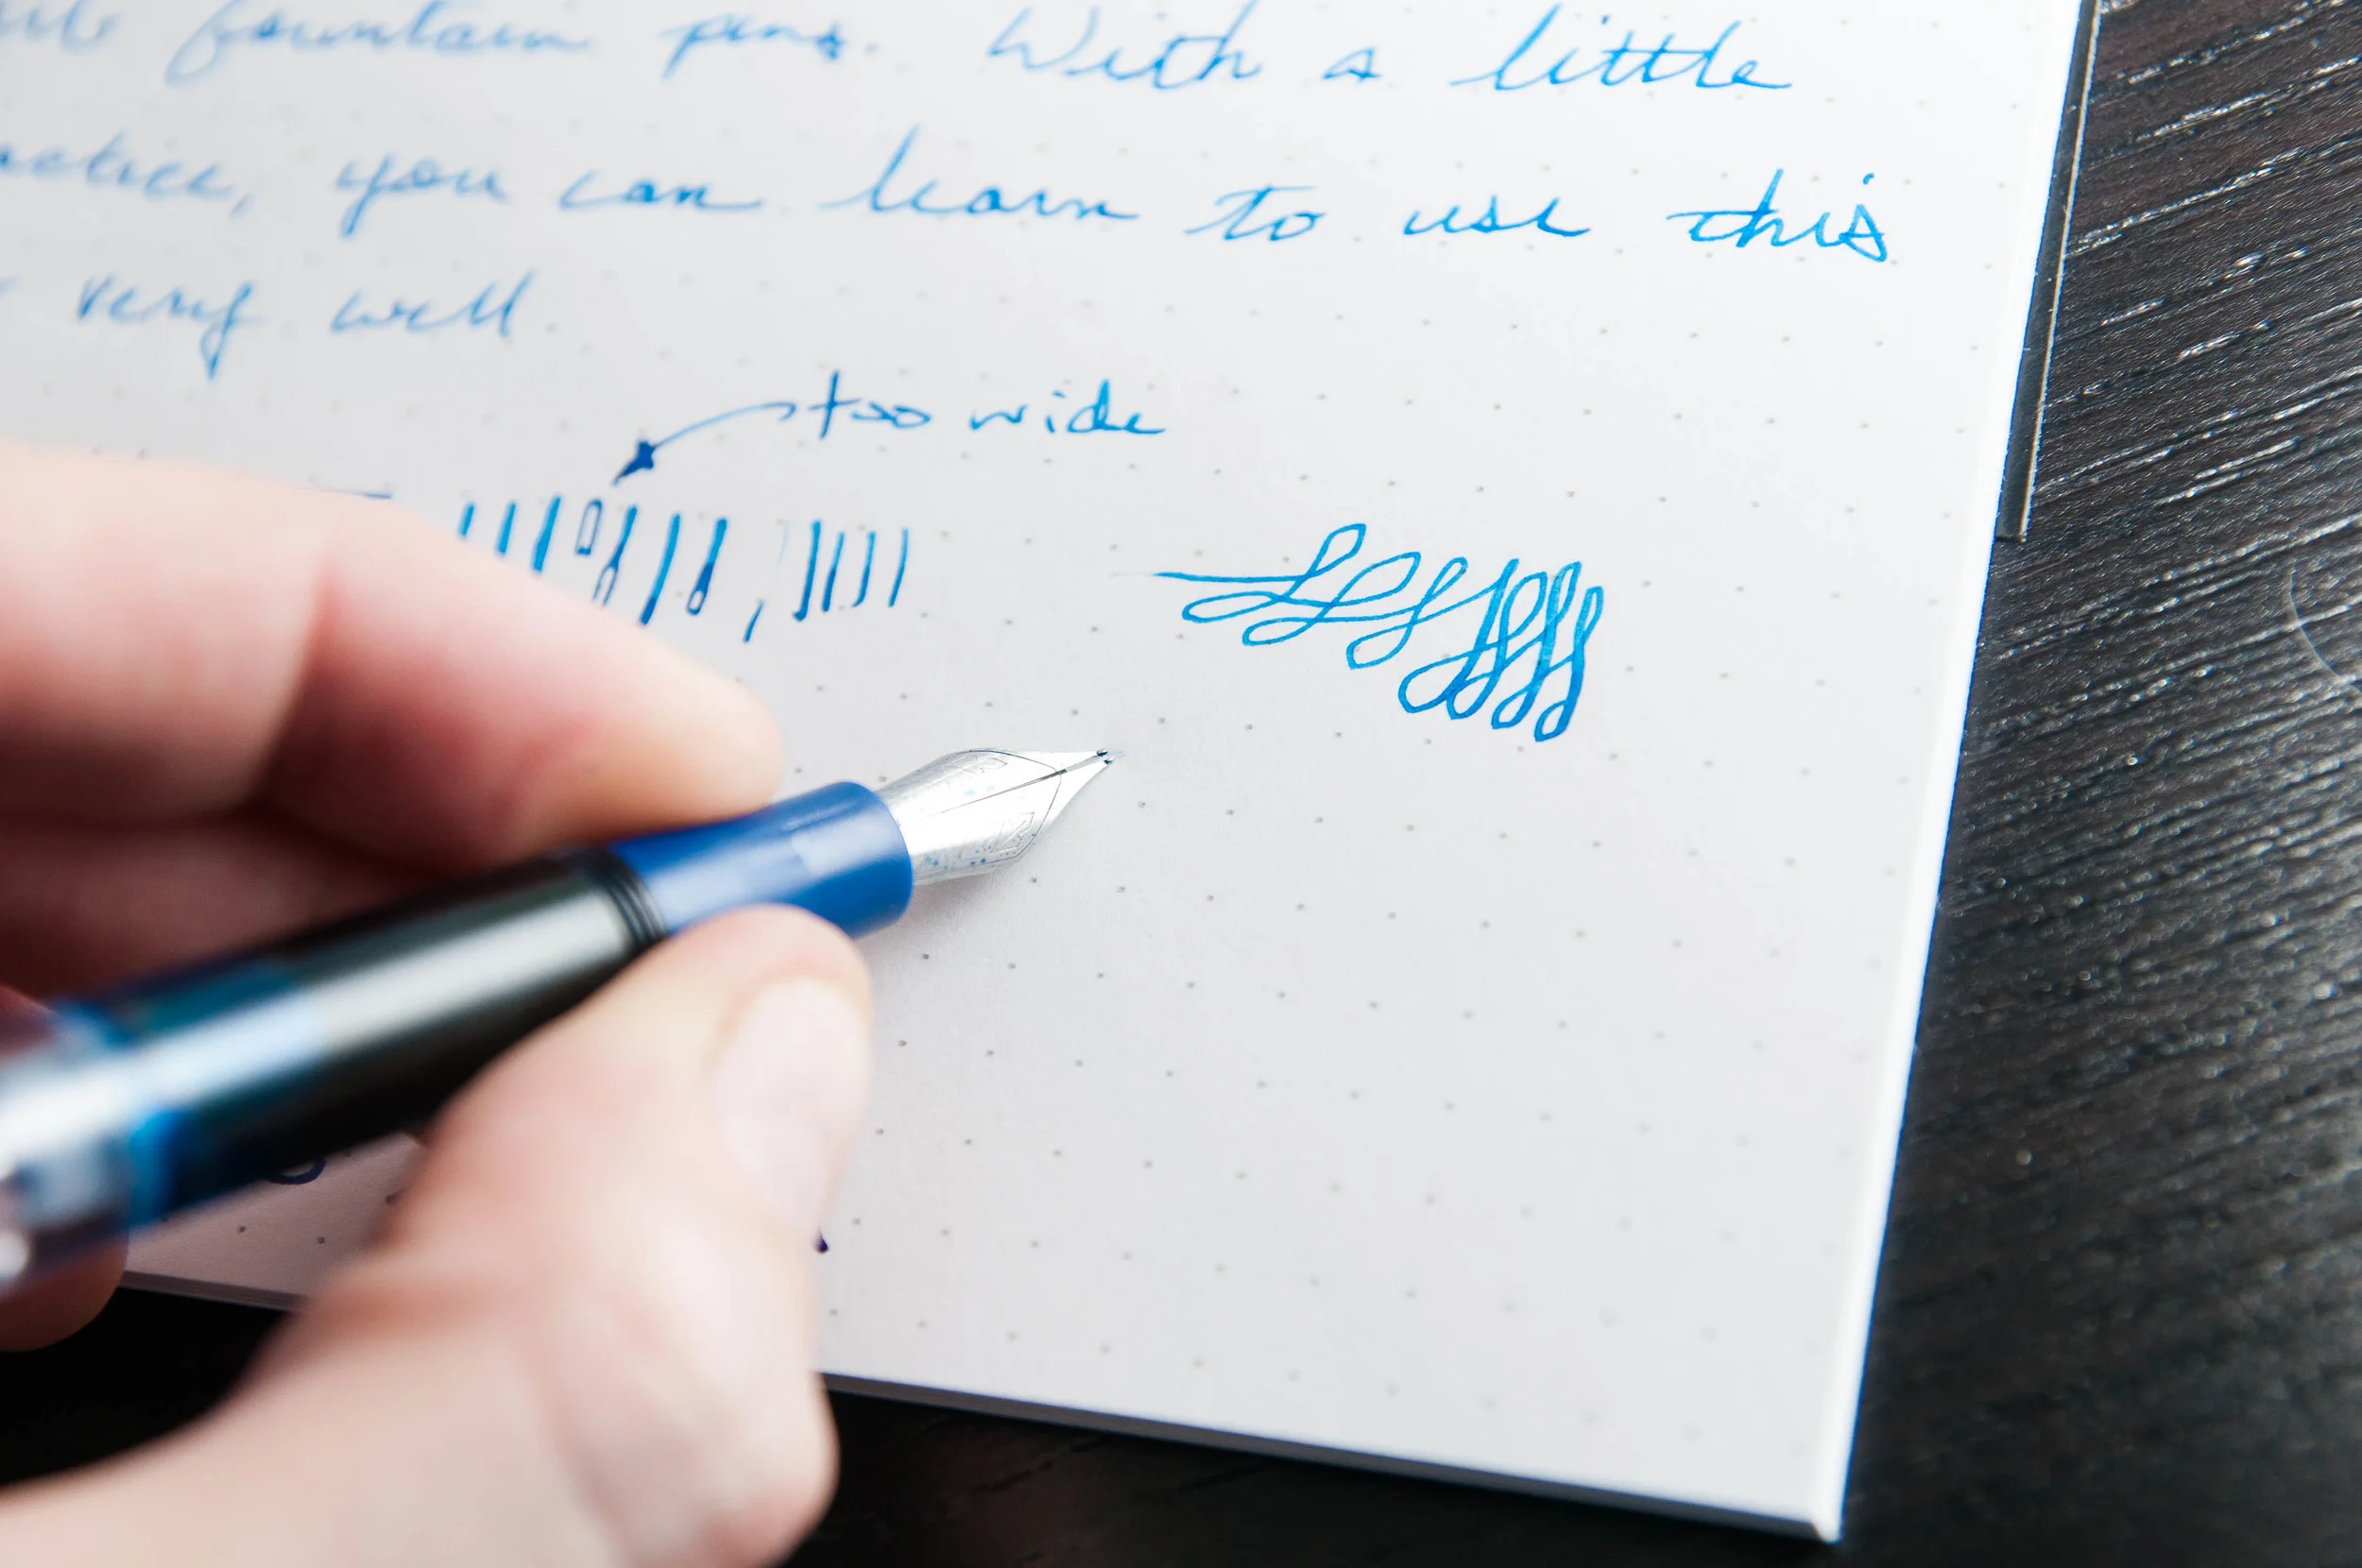 fountain pens. With a little
you can learn to use this
very well.
too wide